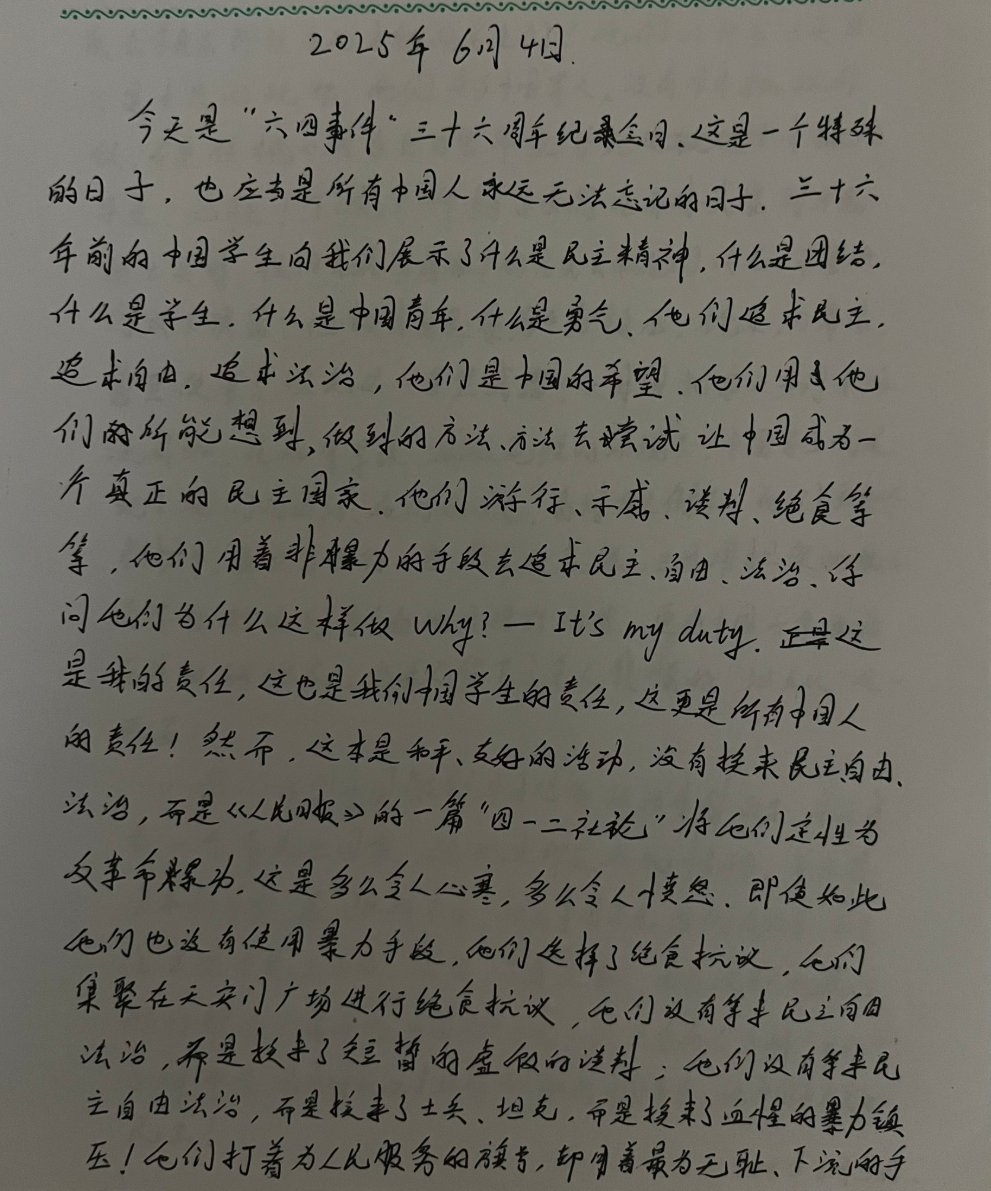 2025年6月4日.
今天是"六四事件"三十六周年纪念日、这是一个特殊
的日子，也应当是所有中国人永远无法忘记的日子．三十六
年前的中国学生向我们展示了什么是民主精神，什么是团结，
什么是学生．什么是中国青年，什么是勇气、他们追求民主，
追求自由，追求法治，他们是中国的希望、他们用他
们所能想到、做到的方法、方法去尝试让中国成为一
个真正的民主国家．他们游行、示威、谈判、绝食等
等，他们用着非暴力的手段去追求民主、自由、法治、你
问他们为什么这样做 Why?— It's my duty. 这
是我的责任，这也是我们中国学生的责任，这更是所有中国人
的责任！然而，这本是和平、友好的活动，没有换来民主自由、
法治，而是《人民日报》的一篇"四一二社论"将他们定性为
反革命暴动，这是多么令人心寒，多么令人愤怒、即使如此
他们也没有使用暴力手段，他们选择了绝食抗议，他们
集聚在天安门广场进行绝食抗议，他们没有等来民主自由
法治，而是换来了短暂的虚假的谈判；他们没有等来民
主自由法治，而是换来了士兵、坦克，而是换来了血腥的暴力镇
压！他们打着为人民服务的旗号，却用着最为无耻、下流的手